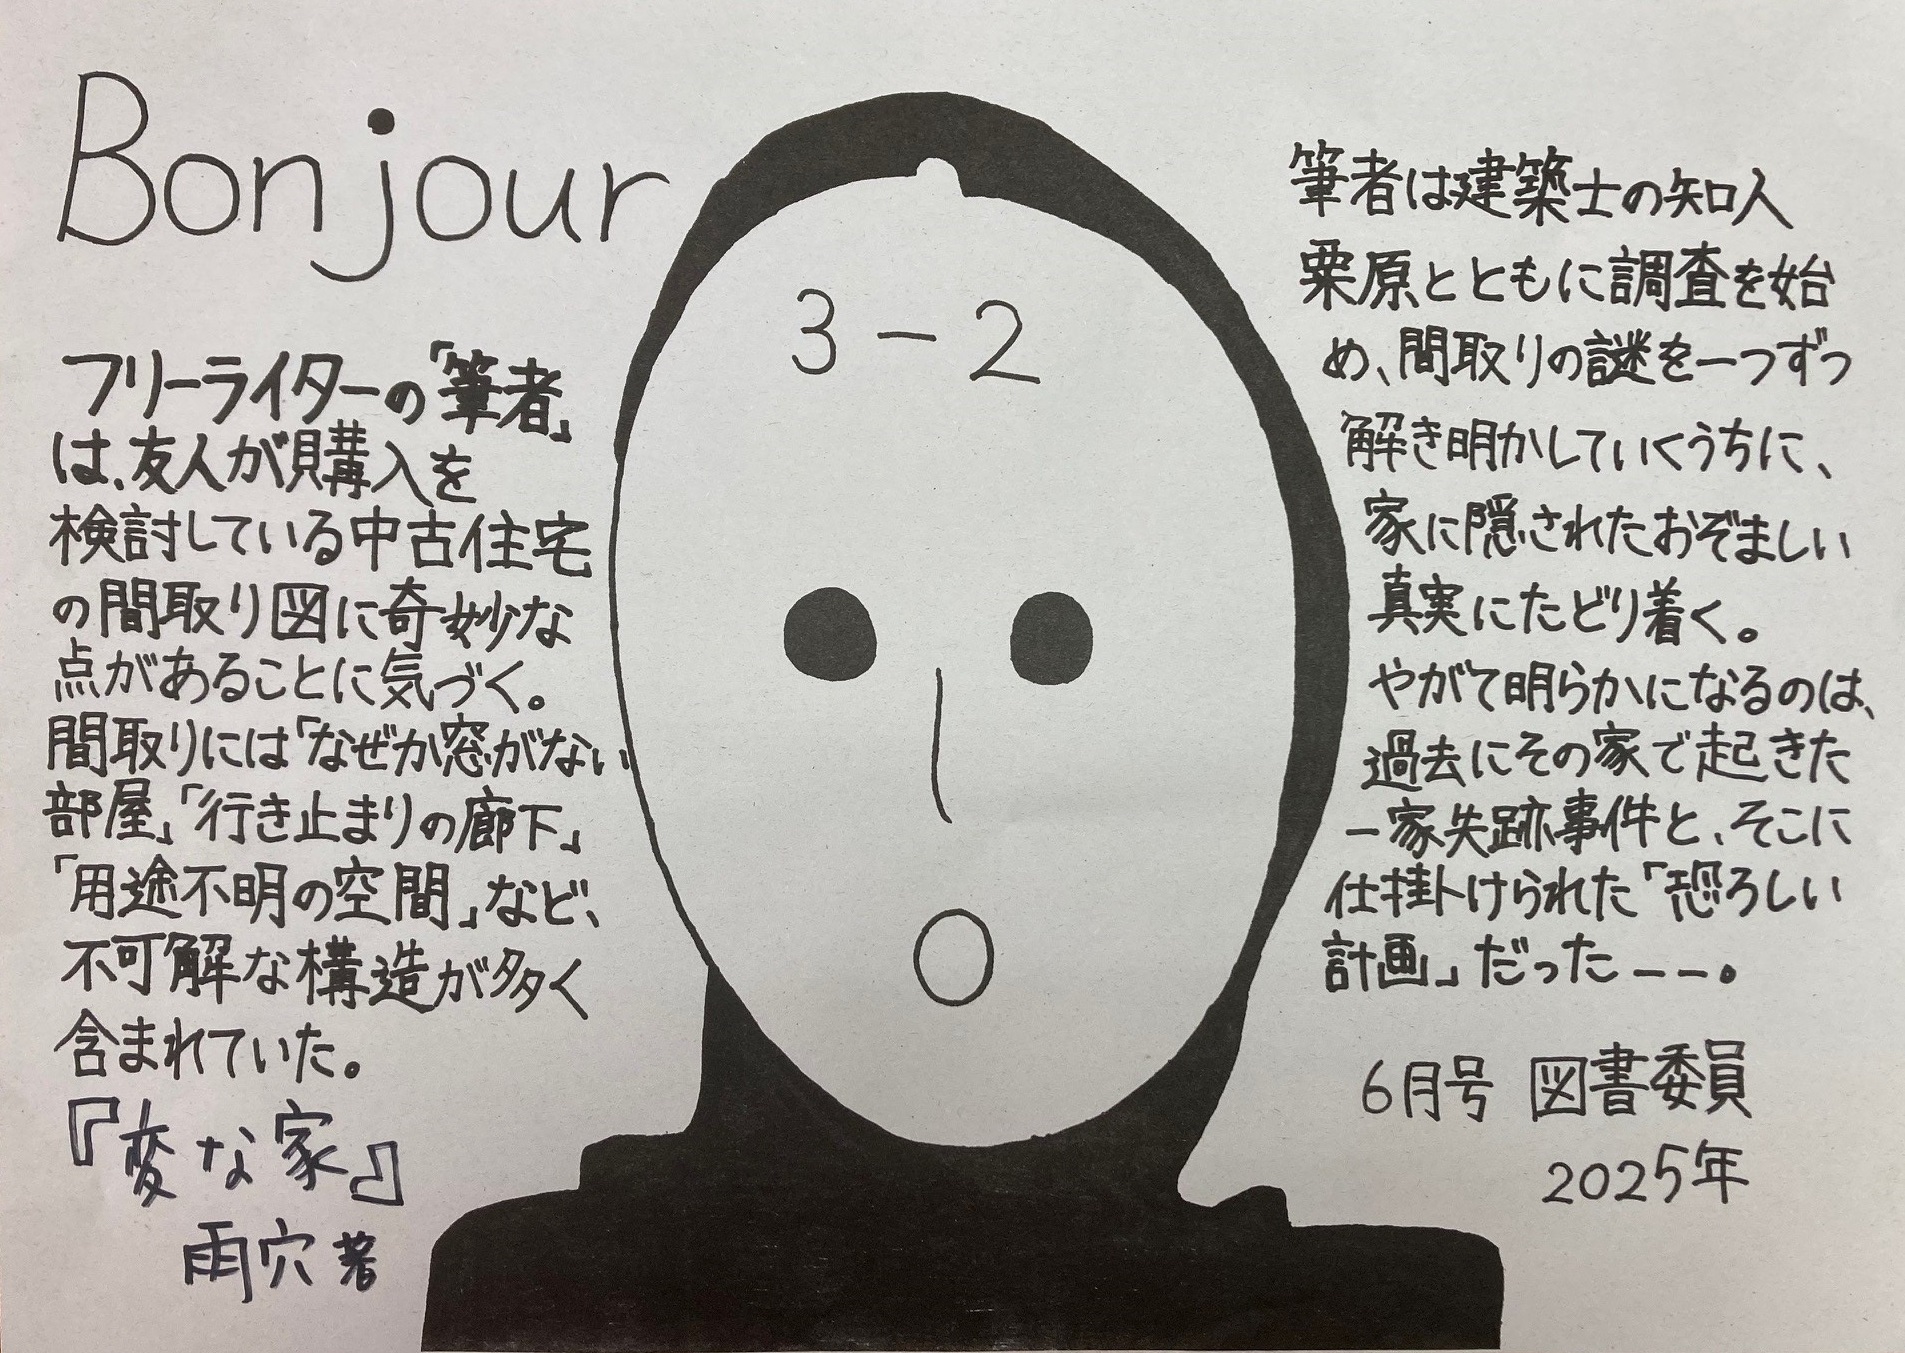 Bonjour
3-2
フリーライターの「筆者」
は、友人が購入を
検討している中古住宅
の間取り図に奇妙な
点があることに気づく。
間取りには「なぜか窓がない
部屋」「行き止まりの廊下」
「用途不明の空間」など、
不可解な構造が多く
含まれていた。
『変な家』
雨穴 著
筆者は建築士の知人
栗原とともに調査を始
め、間取りの謎を一つずつ
解き明かしていくうちに、
家に隠されたおぞましい
真実にたどり着く。
やがて明らかになるのは、
過去にその家で起きた
一家失跡事件と、そこに
仕掛けられた「恐ろしい
計画」だったーー。
6月号 図書委員
2025年